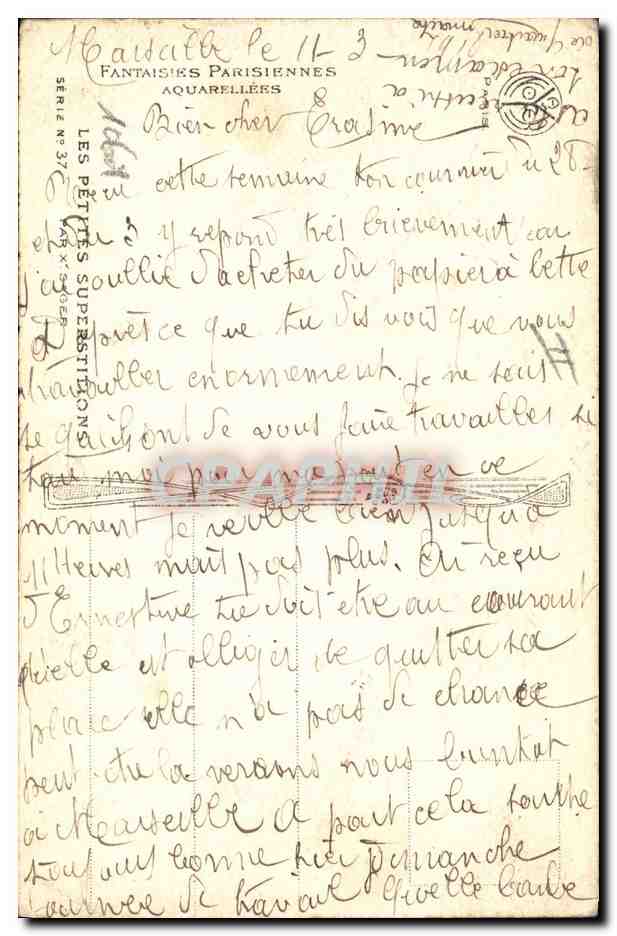 Marseille le 11-3-
FANTAISIES PARISIENNES
AQUARELLÉES
PARIS
LES PETITES SUPERSTITIONS
SÉRIE No 37
Bien cher Erasime
cette semaine ton courrier du 28
et y repond très brievement car
j'ai oullie d'acheter du papier à lette
D'après ce que tu dis vois que vous
travailler enormement. Je ne suis
se qu'ils ont de vous faire travailles si
tan moi pour ma part en ce
moment je veille bien jusqu'a
11 Heures mais pas plus. Ai reçu
d'Ernestine tu doit etre au courant
qu'elle est olliger de quitter sa
place elle n'a pas de chance
peut-etre la verrons nous bientot
à Marseille A part cela
toujours bonne Dimanche
journée de travail Qu'elle barbe